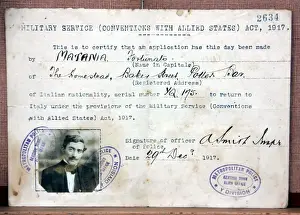 2634
MILITARY SERVICE (CONVENTIONS WITH ALLIED STATES) ACT, 1917.
This is to certify that an application has this day been
made by MATANIA Fortunato.
(Name in Capitals)
or The Homestead, Bakes Street, Potters Bar.
(Registered Address)
of Italian nationality, serial number to return to
Italy under the provisions of the Military Service (Conventions
with Allied States) Act, 1917.
Signature of officer A Smith
of Police.
Date 29th Decr 1917.
METROPOLITAN POLICE
METROPOLITAN POLICE
Y DIVISION